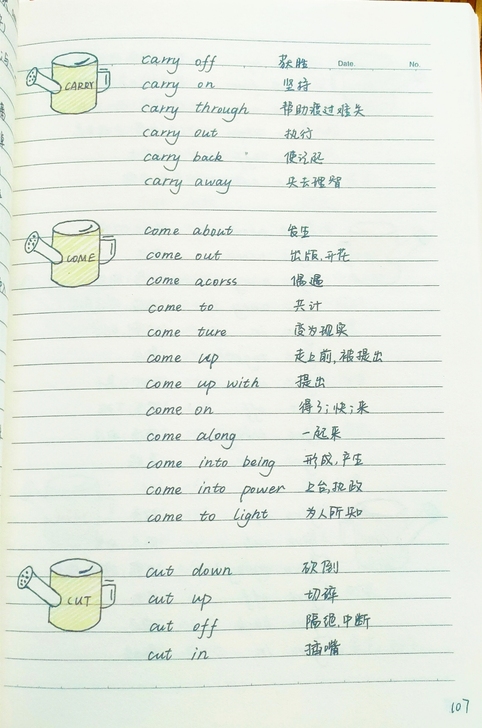 Date. No.
CARRY
carry off 获胜
carry on 坚持
carry through 帮助渡过难关
carry out 执行
carry back 使记起
carry away 失去理智
COME
come about 发生
come out 出版,开花
come acorss 偶遇
come to 共计
come ture 变为现实
come up 走上前,被提出
come up with 提出
come on 得了;快;来
come along 一起来
come into being 形成,产生
come into power 上台,执政
come to light 为人所知
CUT
cut down 砍倒
cut up 切碎
cut off 隔绝,中断
cut in 插嘴
107